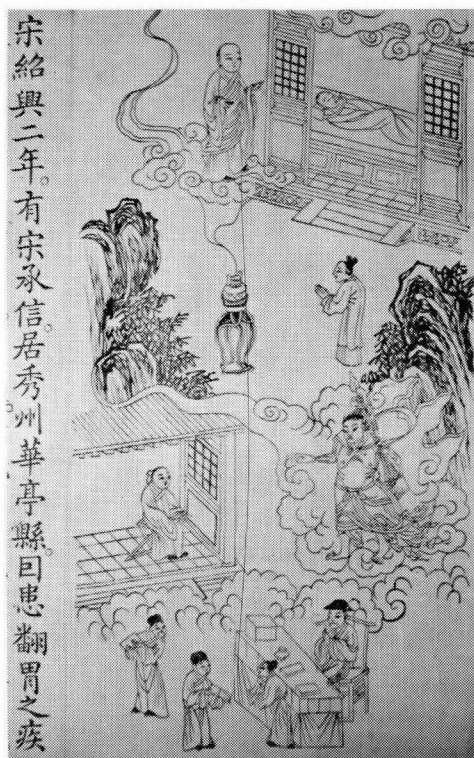 宋紹興二年。有宋承信居秀州華亭縣。囙患翻胃之疾